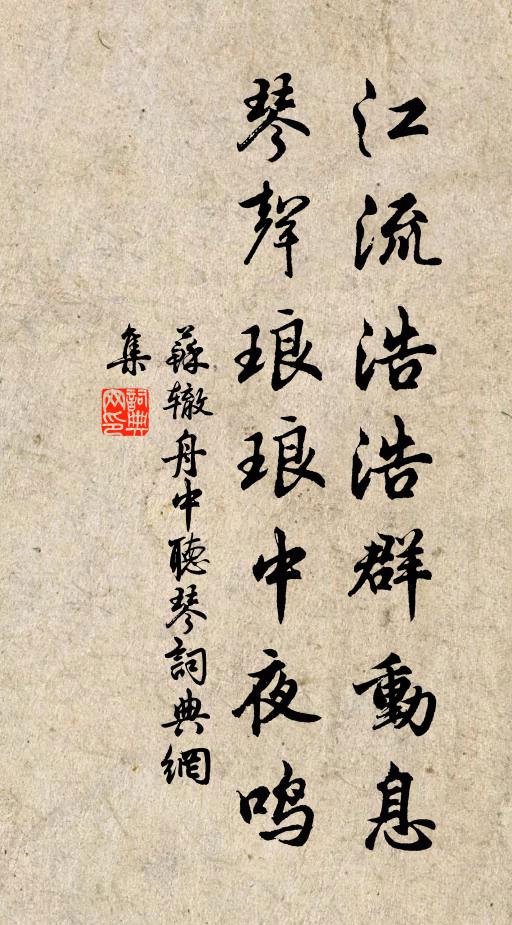 江流浩浩群動息
琴聲琅琅中夜鸣
蘇辙舟中聽琴詞典網
集
詞典
网印